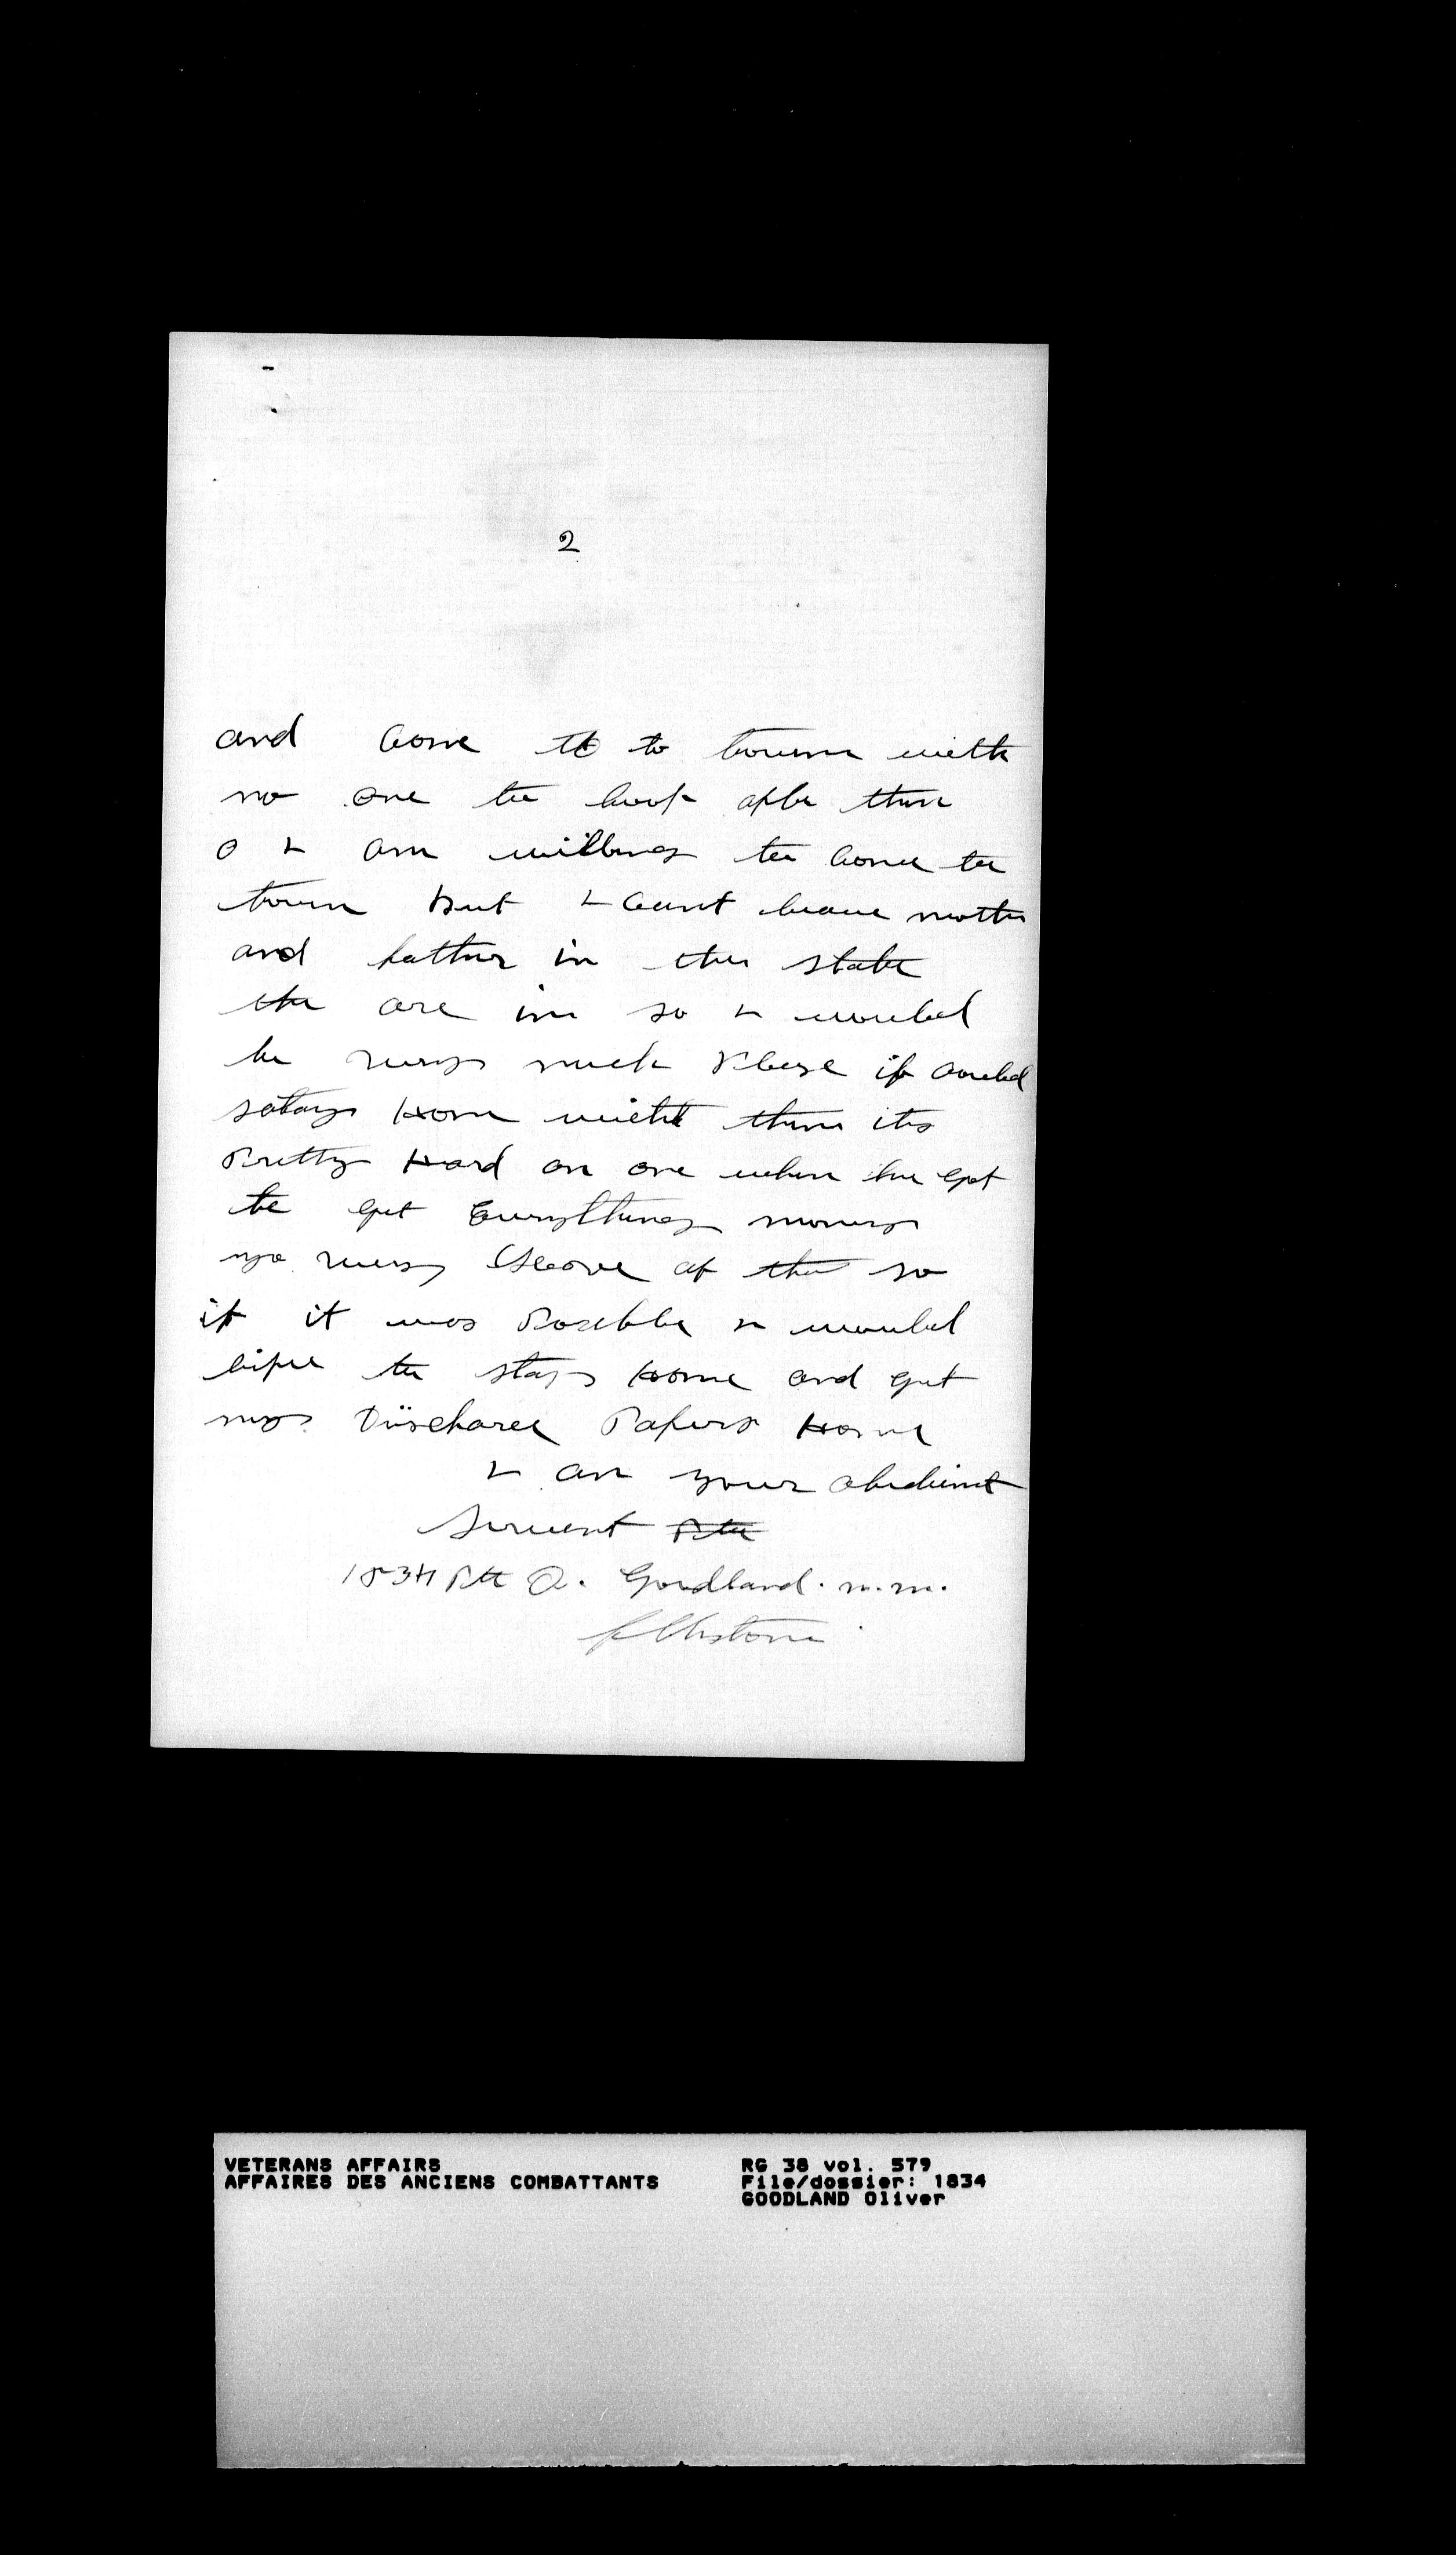 2
and come to to town with
no one to look after them
I am willing to come to
town but I cant leave mother
and father in the state
the are in so I would
be very much Please if could
satay Home with them its
Pretty Hard on one when he got
to get Everything
if it was Posible I would
like to stay Home and get
my Discharee Papers Home
I am your obedient
Servent Pte
1834 Pte O. Goodland. m.m.
VETERANS AFFAIRS
AFFAIRES DES ANCIENS COMBATTANTS
RG 38 vol. 579
File/dossier: 1834
GOODLAND Oliver